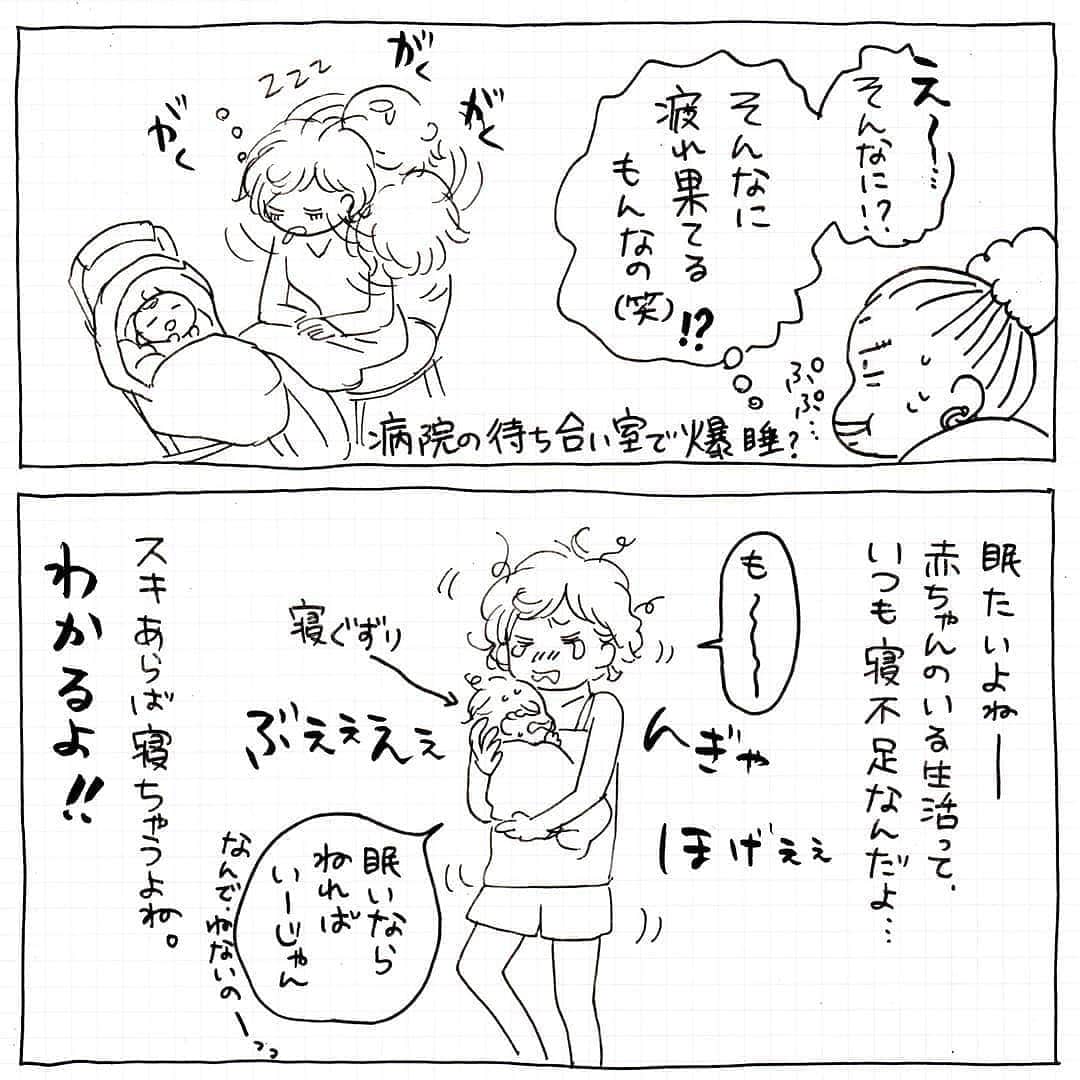 え〜…
そんなに!?
そんなに
疲れ果てる
もんなの
(笑)!?
ぷぷぷ…
がく
がく
がく
zzz
病院の待ち合い室で爆睡?
眠たいよねー
赤ちゃんのいる生活って、
いつも寝不足なんだよ…
も〜〜〜
んぎゃ
ほげぇぇ
寝ぐずり
ぶぇぇぇぇ
眠いなら
ねれば
いーじゃん
なんで・ねないのーっっ
スキあらば寝ちゃうよね。
わかるよ!!